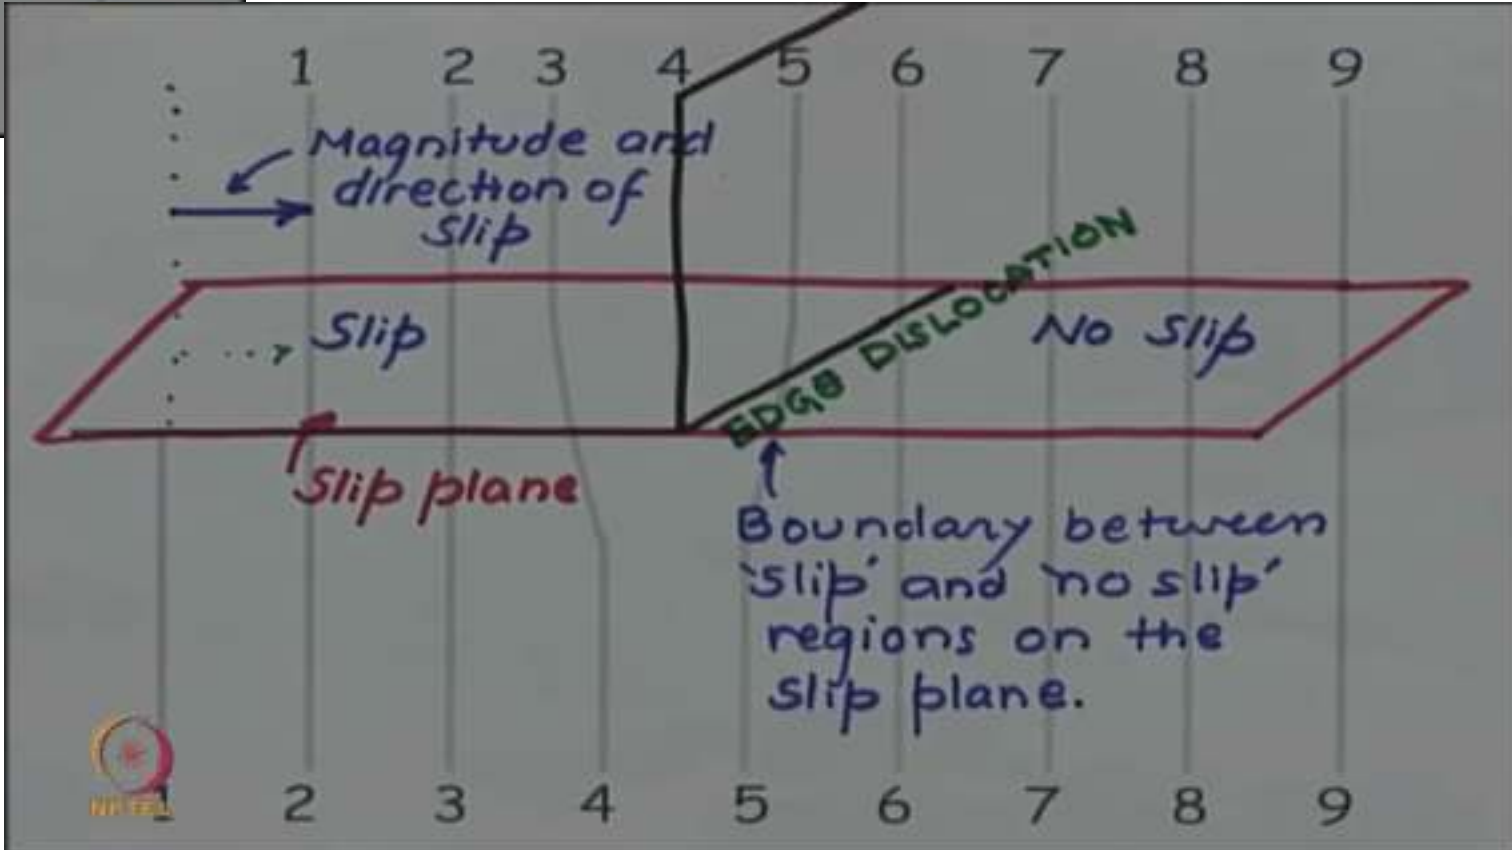 1 2 3 4 5 6 7 8 9
Magnitude and
direction of
Slip
EDGE DISLOCATION
Slip
No Slip
Slip plane
Boundary between
'slip' and 'no slip'
regions on the
slip plane.
NPTEL
1 2 3 4 5 6 7 8 9